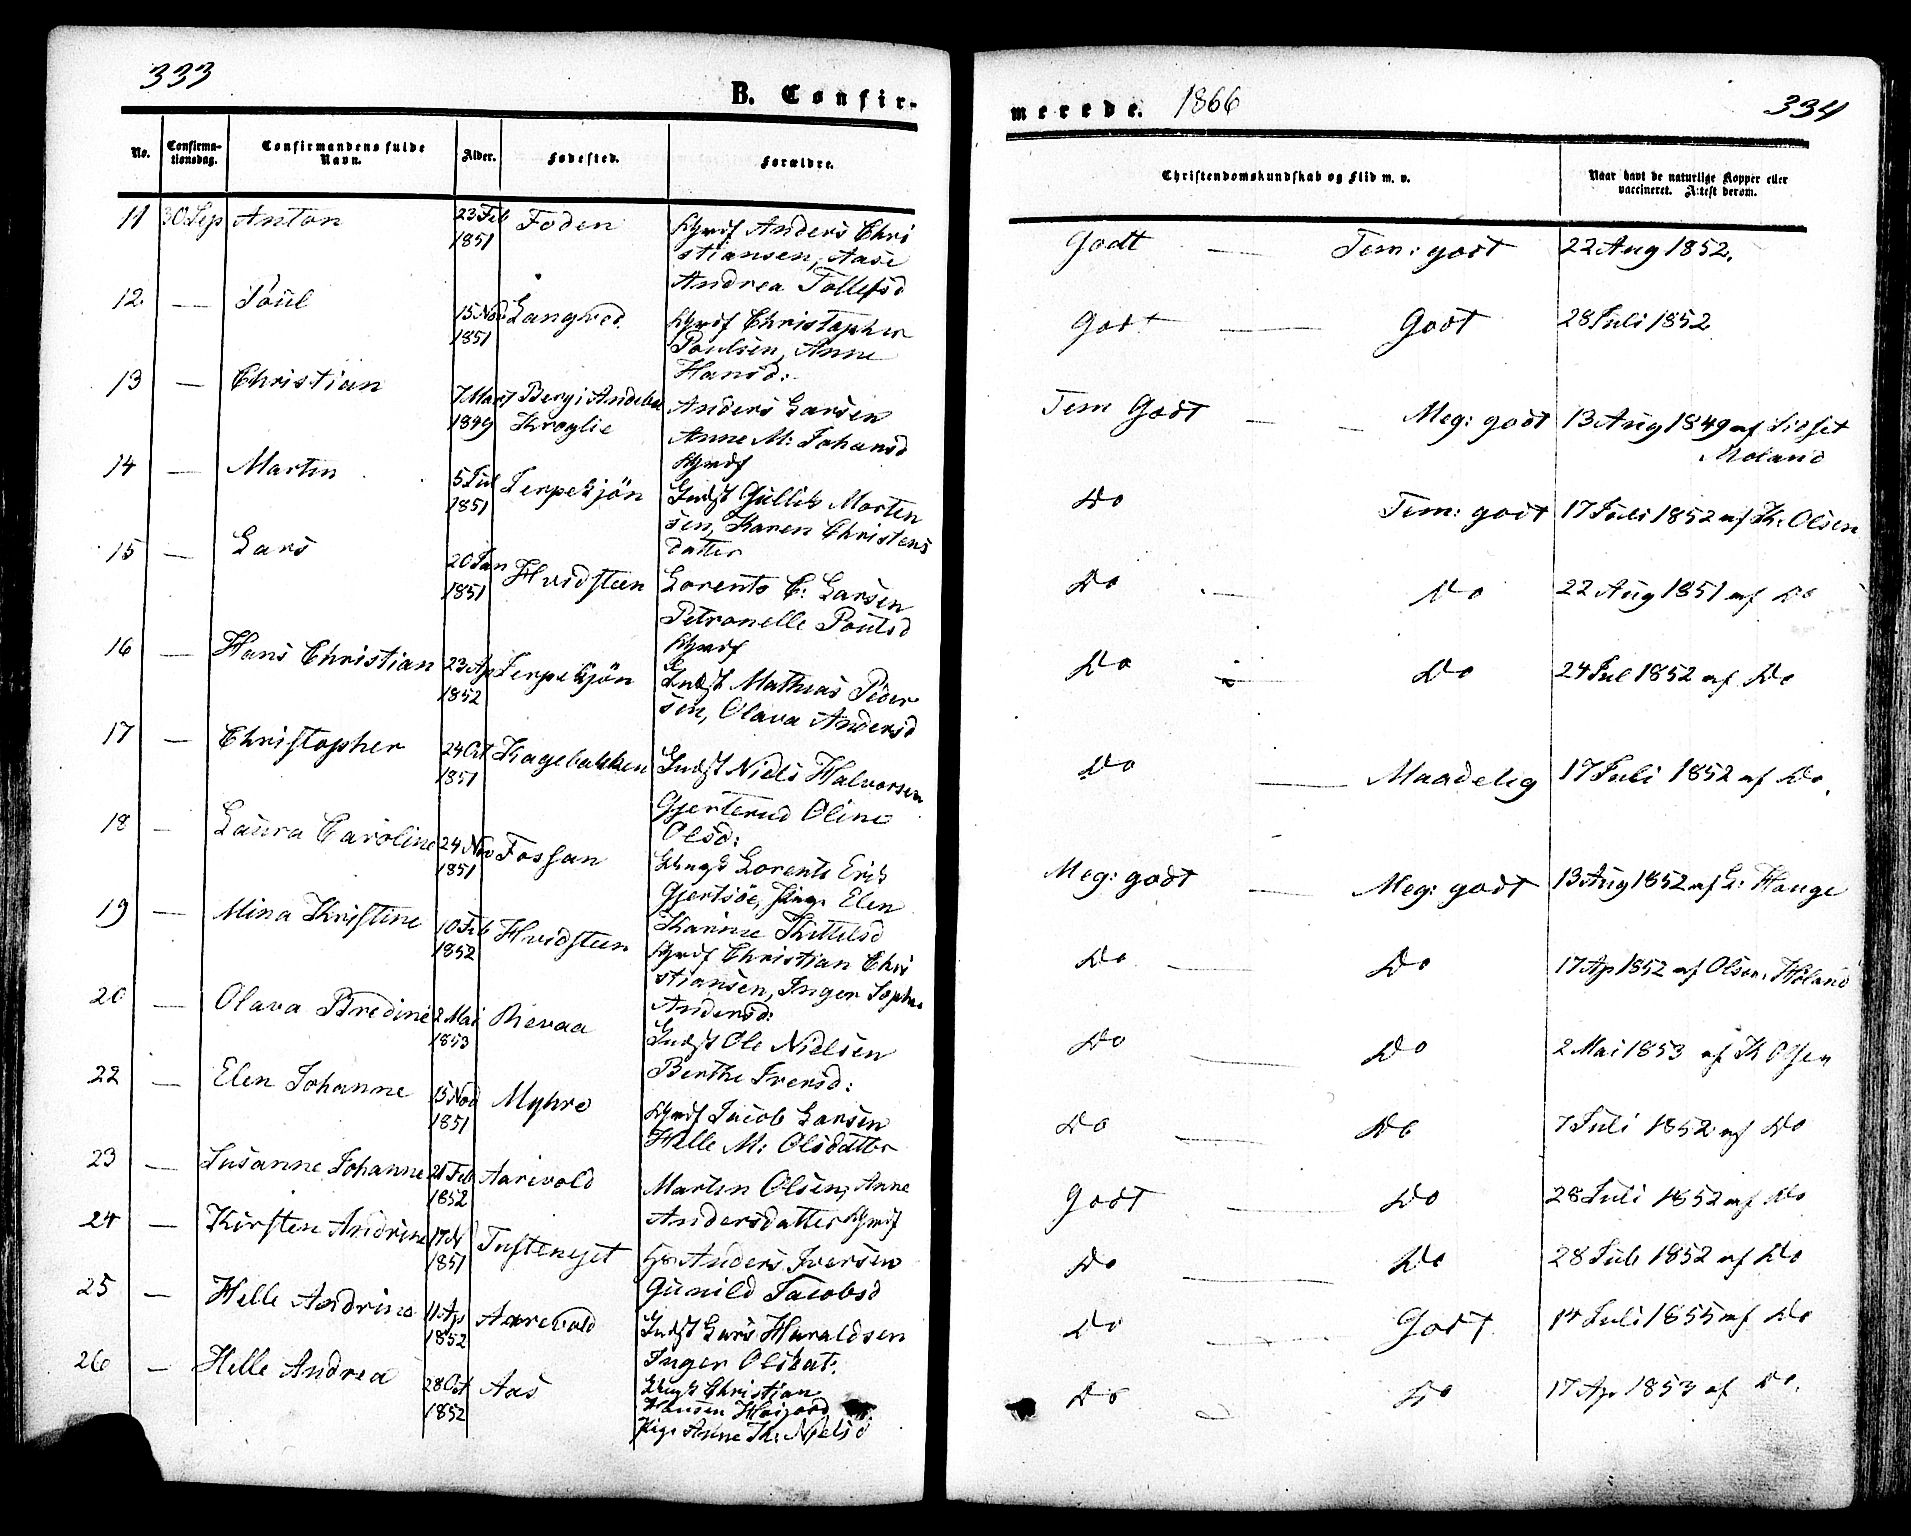 333
B. Confir-
No.
Confirma-
tionsdag.
Confirmandens fulde
Navn.
Alder.
Fødested.
Forældre.
11 30 Sep Anton 23 Feb 1851 Foden
Anders Chri
stiansen, Aase
Andrea Tollefsd
12. — Poul 15 Nov 1851 Langved
Christopher
Poulsen, Anne
Hansd:
13 — Christian 7 Mart 1849 Berg i Andebu Kroglie
Anders Larsen
Anne M: Johansd
14 — Martin 5 Jul 1851 Terpekjön
Indst Gullik Morten
sen, Karen Christens
datter
15 — Lars 20 Jan 1851 Hvidsteen
Lorents C: Larsen
Petronelle Poulsd
16 — Hans Christian 23 Ap 1852 Terpekjön
Indst Mathias Peder
sen, Olava Andersd
17 — Christopher 24 Oct 1851 Kagebakken
Indst Niels Halvorsen
Gjerterud Oline
Olsd:
18 — Laura Caroline 24 Nov 1851 Fossan
Ungk Lorents Erik
Gjertsöe, Pige Elen
Karine Kittelsd
19 — Mina Kristine 10 Feb 1852 Hvidsteen
Christian Chri
stiansen, Inger Sophie
Andersd:
20 — Olava Bredine 2 Mai 1853 Revaa
Indst Ole Nielsen
Berthe Iversd:
22 — Elen Johanne 15 Nov 1851 Myhre
Jacob Larsen
Helle M: Olsdatter
23 — Susanne Johanne 21 Feb 1852 Aarevold
Martin Olsen, Anne
Andersdatter
24 — Kirsten Andrine 17 1851 Tufteneset
Anders Iversen
Gunild Jacobsd
25 — Helle Andrine 11 Ap 1852 Aarevold
Indst Lars Haraldsen
Inger Olsdat:
26 — Helle Andrea 28 Oct 1852 Aas
Ungk Christian
Hansen
Pige Anne Th: Nielsd
merede. 1866
334
Christendomskundskab og Flid m. v.
Naar havt de naturlige Kopper eller
vaccineret. Attest derom.
Godt — Tem: godt 22 Aug 1852.
Godt — Godt 28 Juli 1852
Tem Godt — Meg: godt 13 Aug 1849 af
Moland
Do Tem: godt 17 Juli 1852 af K: Olsen
Do — Do 22 Aug 1851 af Do
Do — Do 24 Jul 1852 af Do
Do — Maadelig 17 Juli 1852 af Do.
Meg: godt — Meg: godt 13 Aug 1852 af L: Hauge
Do — Do 17 Ap 1852 af Olsen, Holand
Do — Do 2 Mai 1853 af K Olsen
Do — Do 7 Juli 1852 af Do
Godt — Do 28 Juli 1852 af Do
Do — Do 28 Juli 1852 af Do
Do — Godt 14 Juli 1855 af Do
Do Do 17 Ap 1853 af Do.